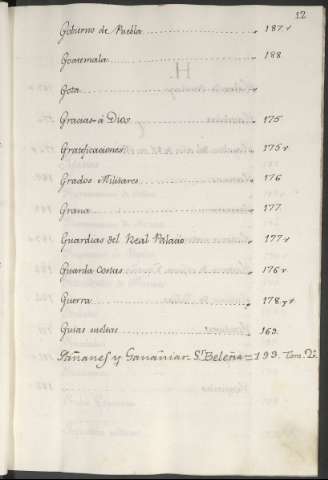 12
Gobierno de Puebla 187 v
Goatemala 188
Gota v
Gracias á Dios 175
Gratificaciones 175 v
Grados Militares 176
Grana 177
Guardias del Real Palacio 177 v
Guarda Costas 176 v
Guerra 178 y v
Guias sueltas 163
Gañanes y Gananias Beleña = 193. Tom. 2.